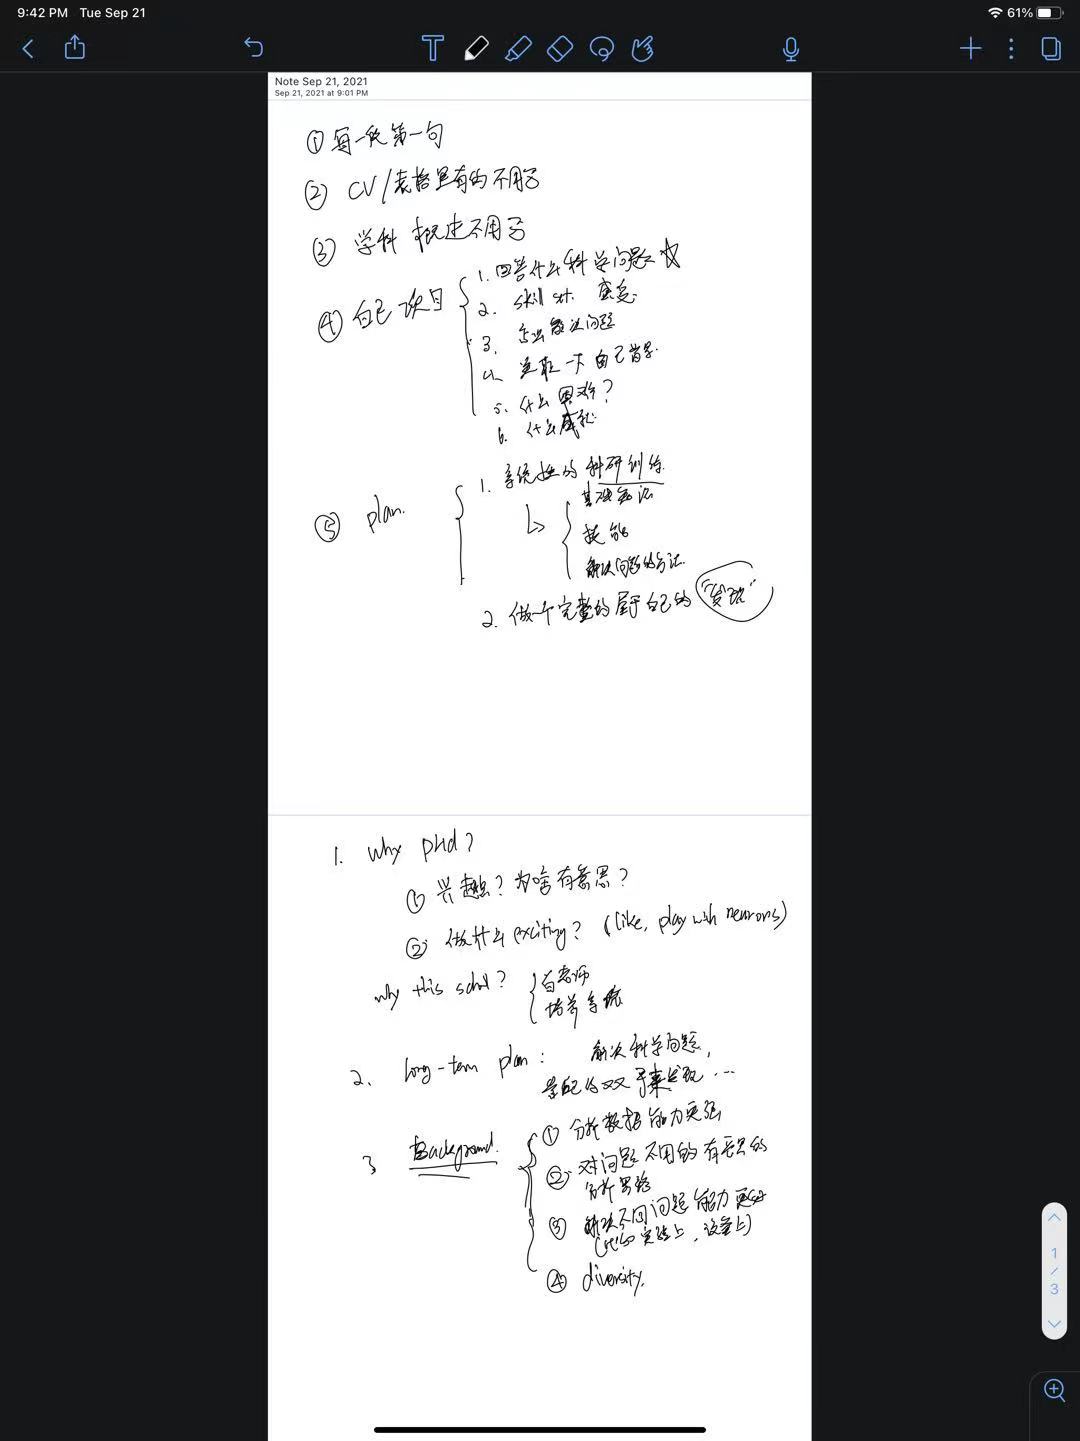 9:42 PM Tue Sep 21
61%
Note Sep 21, 2021
Sep 21, 2021 at 9:01 PM
① 每一段第一句
② CV/表格里有的不用写
③ 学科 概述不用写
④ 自己项目
1. 回答什么科学问题 ☆
2. skill set.
3. 怎么解决问题
4. 一下自己背景.
5. 什么困难?
6. 什么成就
⑤ plan.
1. 系统性的科研训练.
基础知识
技能
解决问题的方法.
2. 做一个完整的属于自己的 "发现"
1. Why PHd?
① 兴趣? 为啥有意思?
② 做什么 exciting? (like, play with neurons)
why this school?
有老师
培养系统
2. Long-term plan: 解决科学问题,
发现 ...
3 Background.
① 分析数据能力更强
② 对问题不同的有
分析思路
③ 解决不同问题能力更好
(比如实验上, 设备上)
④ diversity.
1
/
3